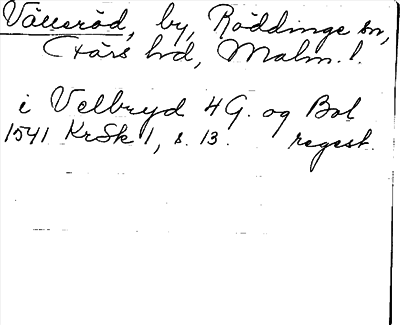 Välleröd, by, Röddinge sn,
Färs hrd, Malm. l.
i Velbryd 4 G. og Bol
1541 KrSk 1, s. 13. regest.